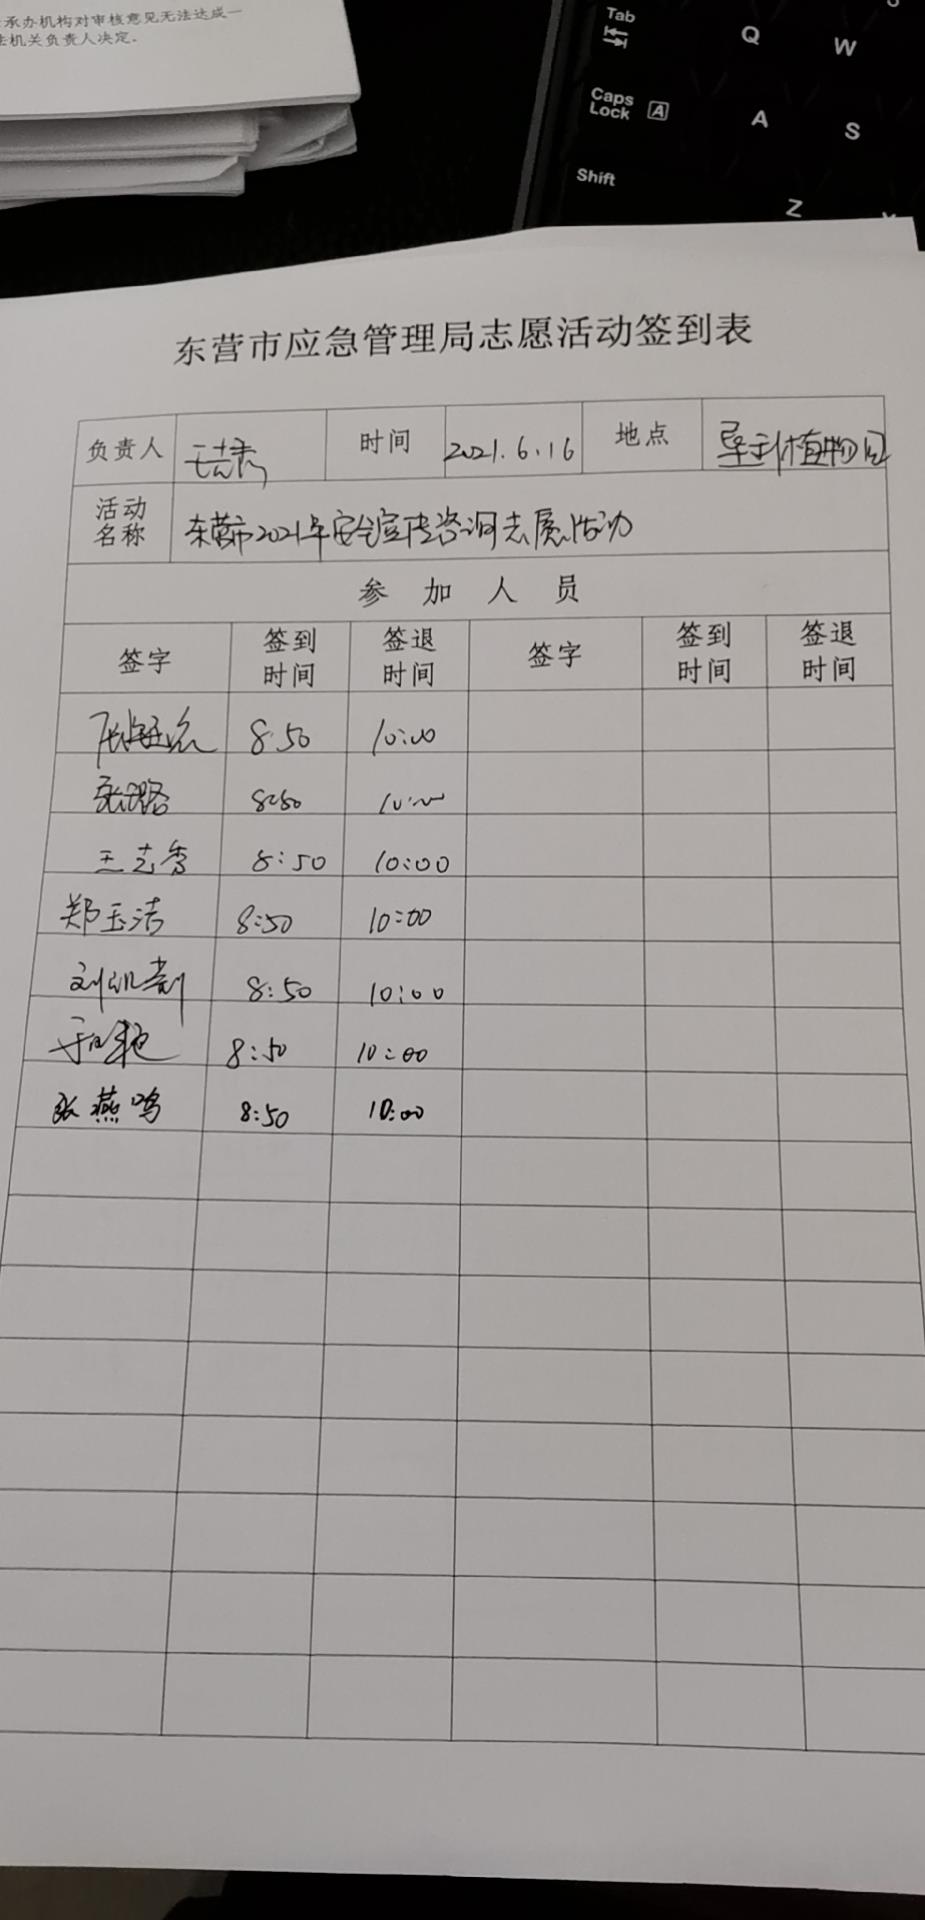 承办机构对审核意见无法达成一
法机关负责人决定.
Tab
Q
W
Caps Lock A
A
S
Shift
Z
东营市应急管理局志愿活动签到表
负责人 时间 2021.6.16 地点 垦利植物园
活动名称 东营市2021年安全宣传咨询志愿活动
参加人员
签字 签到时间 签退时间 签字 签到时间 签退时间
8:50 10:00
张璐 8:50 10:00
王志秀 8:50 10:00
郑玉洁 8:50 10:00
8:50 10:00
8:50 10:00
张燕鸣 8:50 10:00